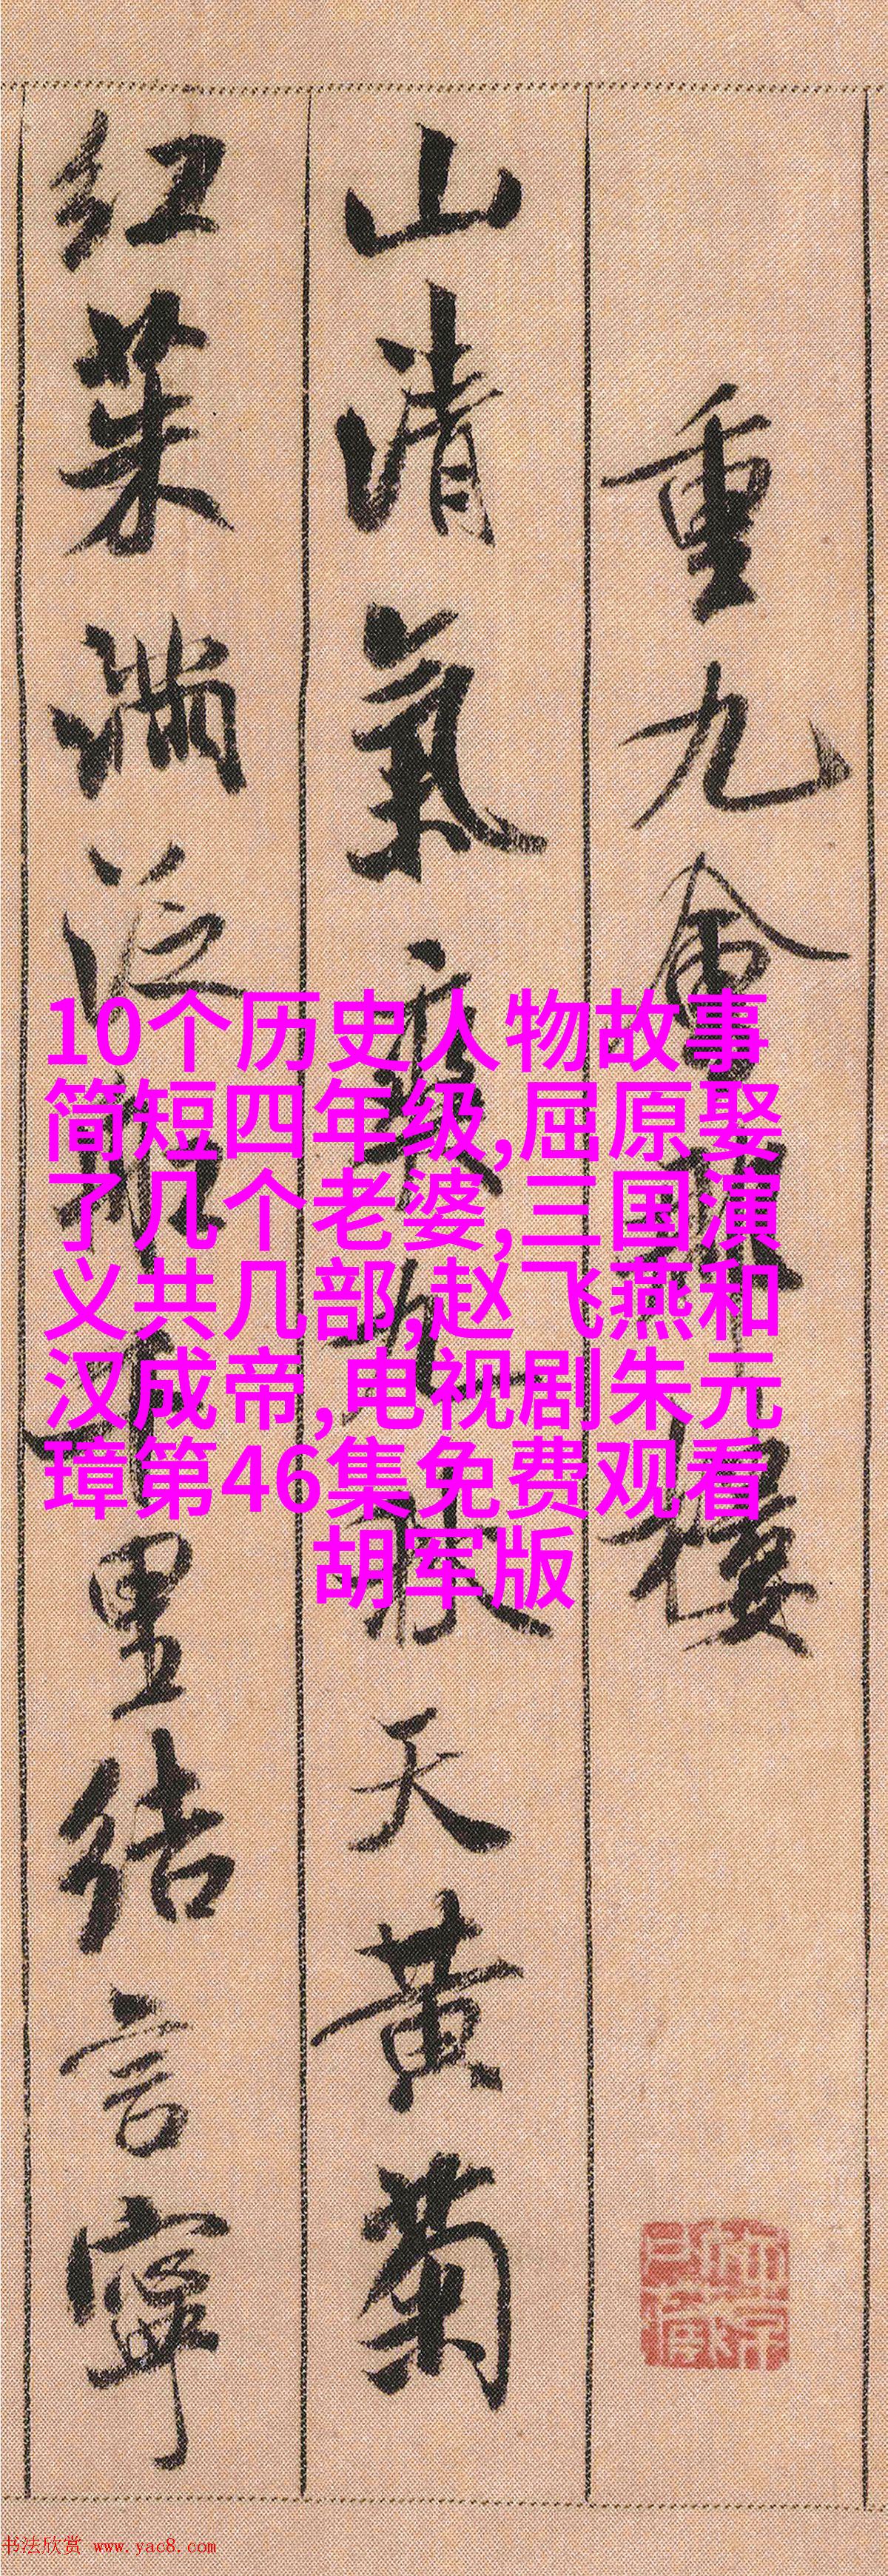 重九會郡樓
山清氣爽九秋天黃菊
紅茱滿泛船千里結言寧
10个历史人物故事
简短四年级,屈原娶
了几个老婆,三国演
义共几部,赵飞燕和
汉成帝,电视剧朱元
璋第46集免费观看
胡军版
书法欣赏 www.yac8.com